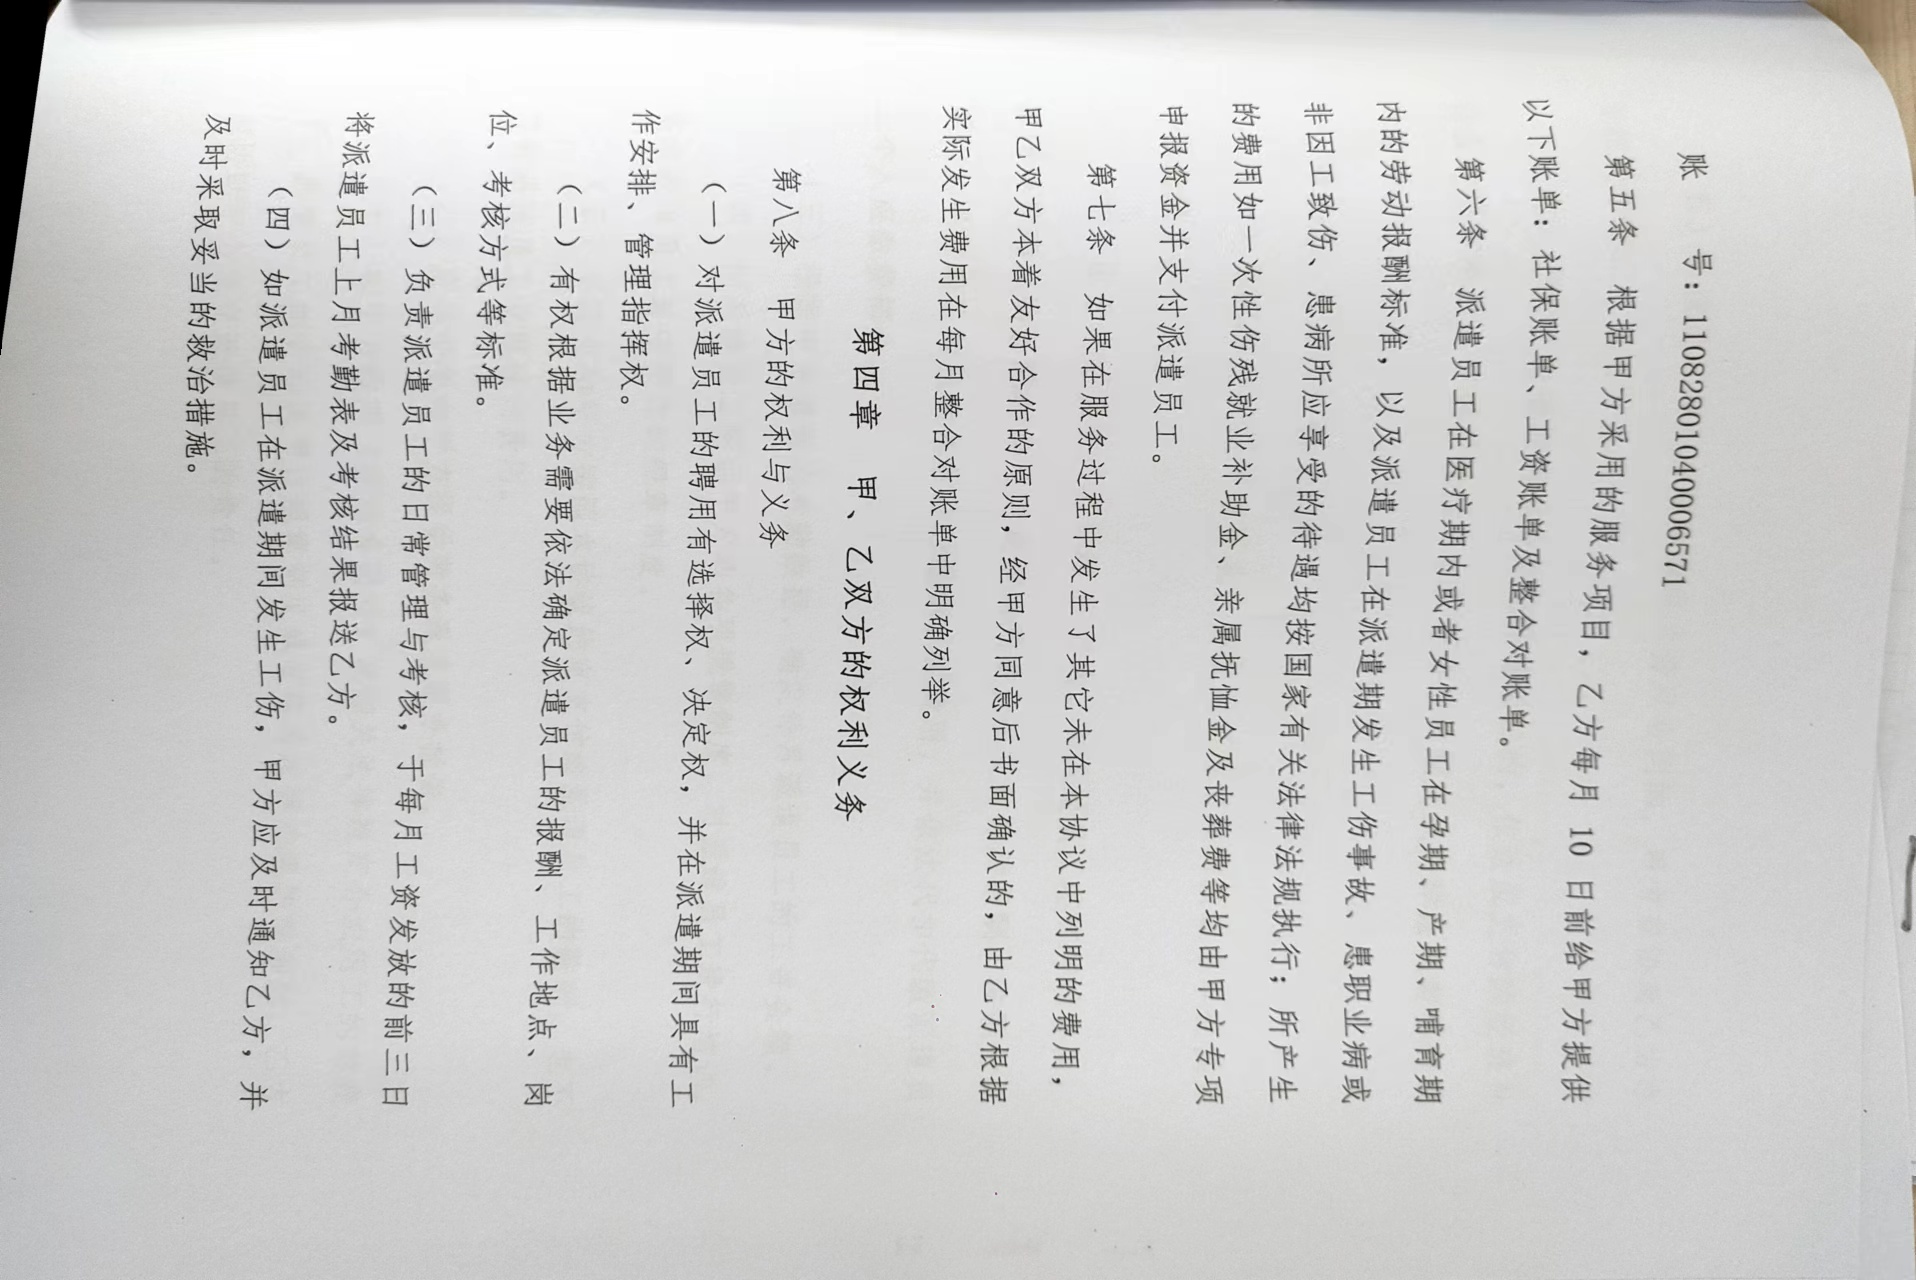 账　　号：110828010400006571
第五条　根据甲方采用的服务项目，乙方每月 10 日前给甲方提供
以下账单：社保账单、工资账单及整合对账单。
第六条　派遣员工在医疗期内或者女性员工在孕期、产期、哺育期
内的劳动报酬标准，以及派遣员工在派遣期发生工伤事故、患职业病或
非因工致伤、患病所应享受的待遇均按国家有关法律法规执行；所产生
的费用如一次性伤残就业补助金、亲属抚恤金及丧葬费等均由甲方专项
申报资金并支付派遣员工。
第七条　如果在服务过程中发生了其它未在本协议中列明的费用，
甲乙双方本着友好合作的原则，经甲方同意后书面确认的，由乙方根据
实际发生费用在每月整合对账单中明确列举。
第四章　甲、乙双方的权利义务
第八条　甲方的权利与义务
（一）对派遣员工的聘用有选择权、决定权，并在派遣期间具有工
作安排、管理指挥权。
（二）有权根据业务需要依法确定派遣员工的报酬、工作地点、岗
位、考核方式等标准。
（三）负责派遣员工的日常管理与考核，于每月工资发放的前三日
将派遣员工上月考勤表及考核结果报送乙方。
（四）如派遣员工在派遣期间发生工伤，甲方应及时通知乙方，并
及时采取妥当的救治措施。